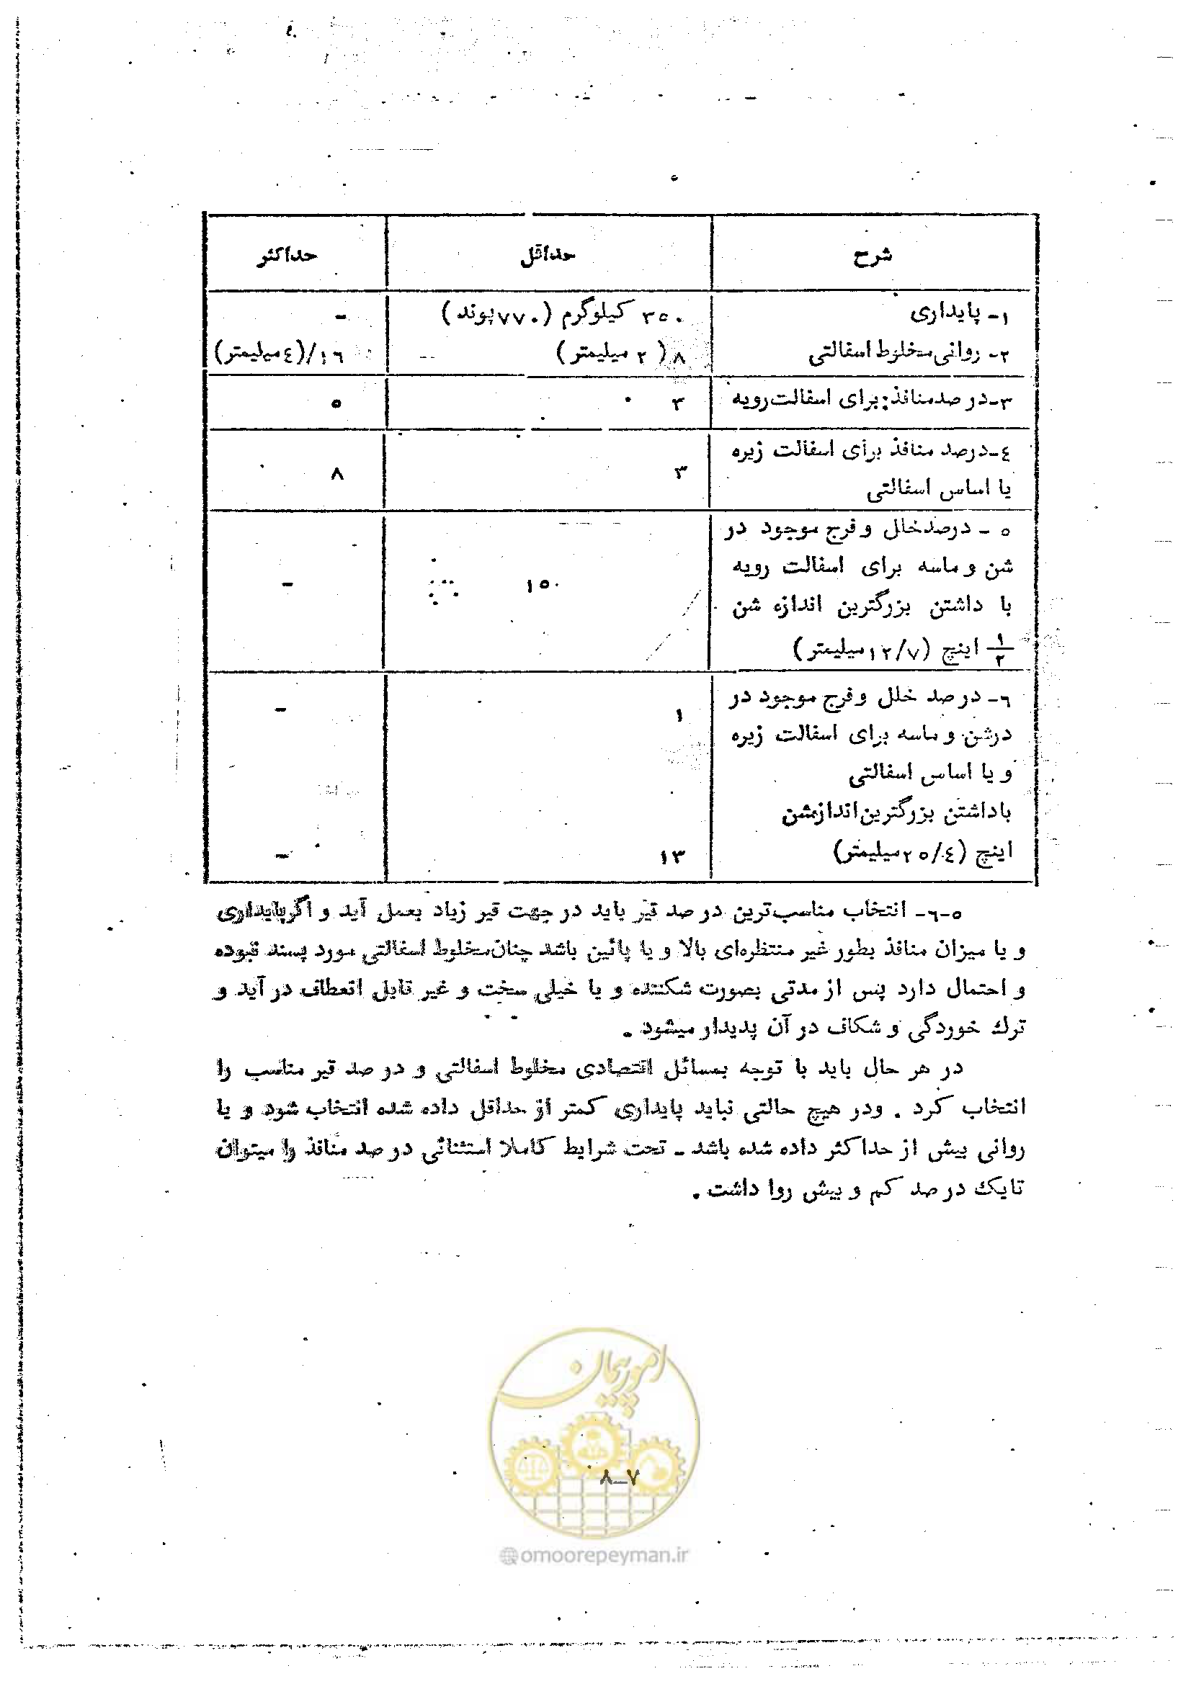 شرح حداقل حداکثر
۱ـ پایداری ۳۵۰ کیلوگرم (۷۷۰ پوند) ـ
۲ـ روانی مخلوط اسفالتی ۸ (۲ میلیمتر) ۱۶/(۴ میلیمتر)
۳ـ در صد منافذ: برای اسفالت رویه ۳ ۵
۴ـ درصد منافذ برای اسفالت زیره ۳ ۸
یا اساس اسفالتی
۵ ـ درصد خال و فرج موجود در
شن و ماسه برای اسفالت رویه ۱۵۰ ـ
با داشتن بزرگترین اندازه شن
۱/۲ اینچ (۱۲/۷ میلیمتر)
۶ـ در صد خلل و فرج موجود در ۱ ـ
درشن و ماسه برای اسفالت زیره
و یا اساس اسفالتی
باداشتن بزرگترین اندازه شن
اینچ (۲۵/۴ میلیمتر) ۱۳ ـ
۵-۶- انتخاب مناسب‌ترین در صد قیر باید در جهت قیر زیاد بعمل آید و اگر پایداری
و یا میزان منافذ بطور غیر منتظره‌ای بالا و یا پائین باشد چنان مخلوط اسفالتی مورد پسند نبوده
و احتمال دارد پس از مدتی بصورت شکننده و یا خیلی سخت و غیر قابل انعطاف در آید و
ترک خوردگی و شکاف در آن پدیدار میشود .
در هر حال باید با توجه بمسائل اقتصادی مخلوط اسفالتی و در صد قیر مناسب را
انتخاب کرد . ودر هیچ حالتی نباید پایداری کمتر از حداقل داده شده انتخاب شود و یا
روانی بیش از حداکثر داده شده باشد ـ تحت شرایط کاملا استثنائی در صد منافذ را میتوان
تایک در صد کم و بیش روا داشت .
امور پیمان
۸ـ۷
@omoorepeyman.ir